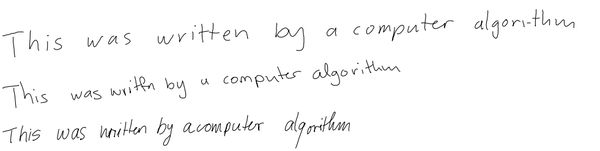 This was written by a computer algorithm
This was written by a computer algorithm
This was written by a computer algorithm